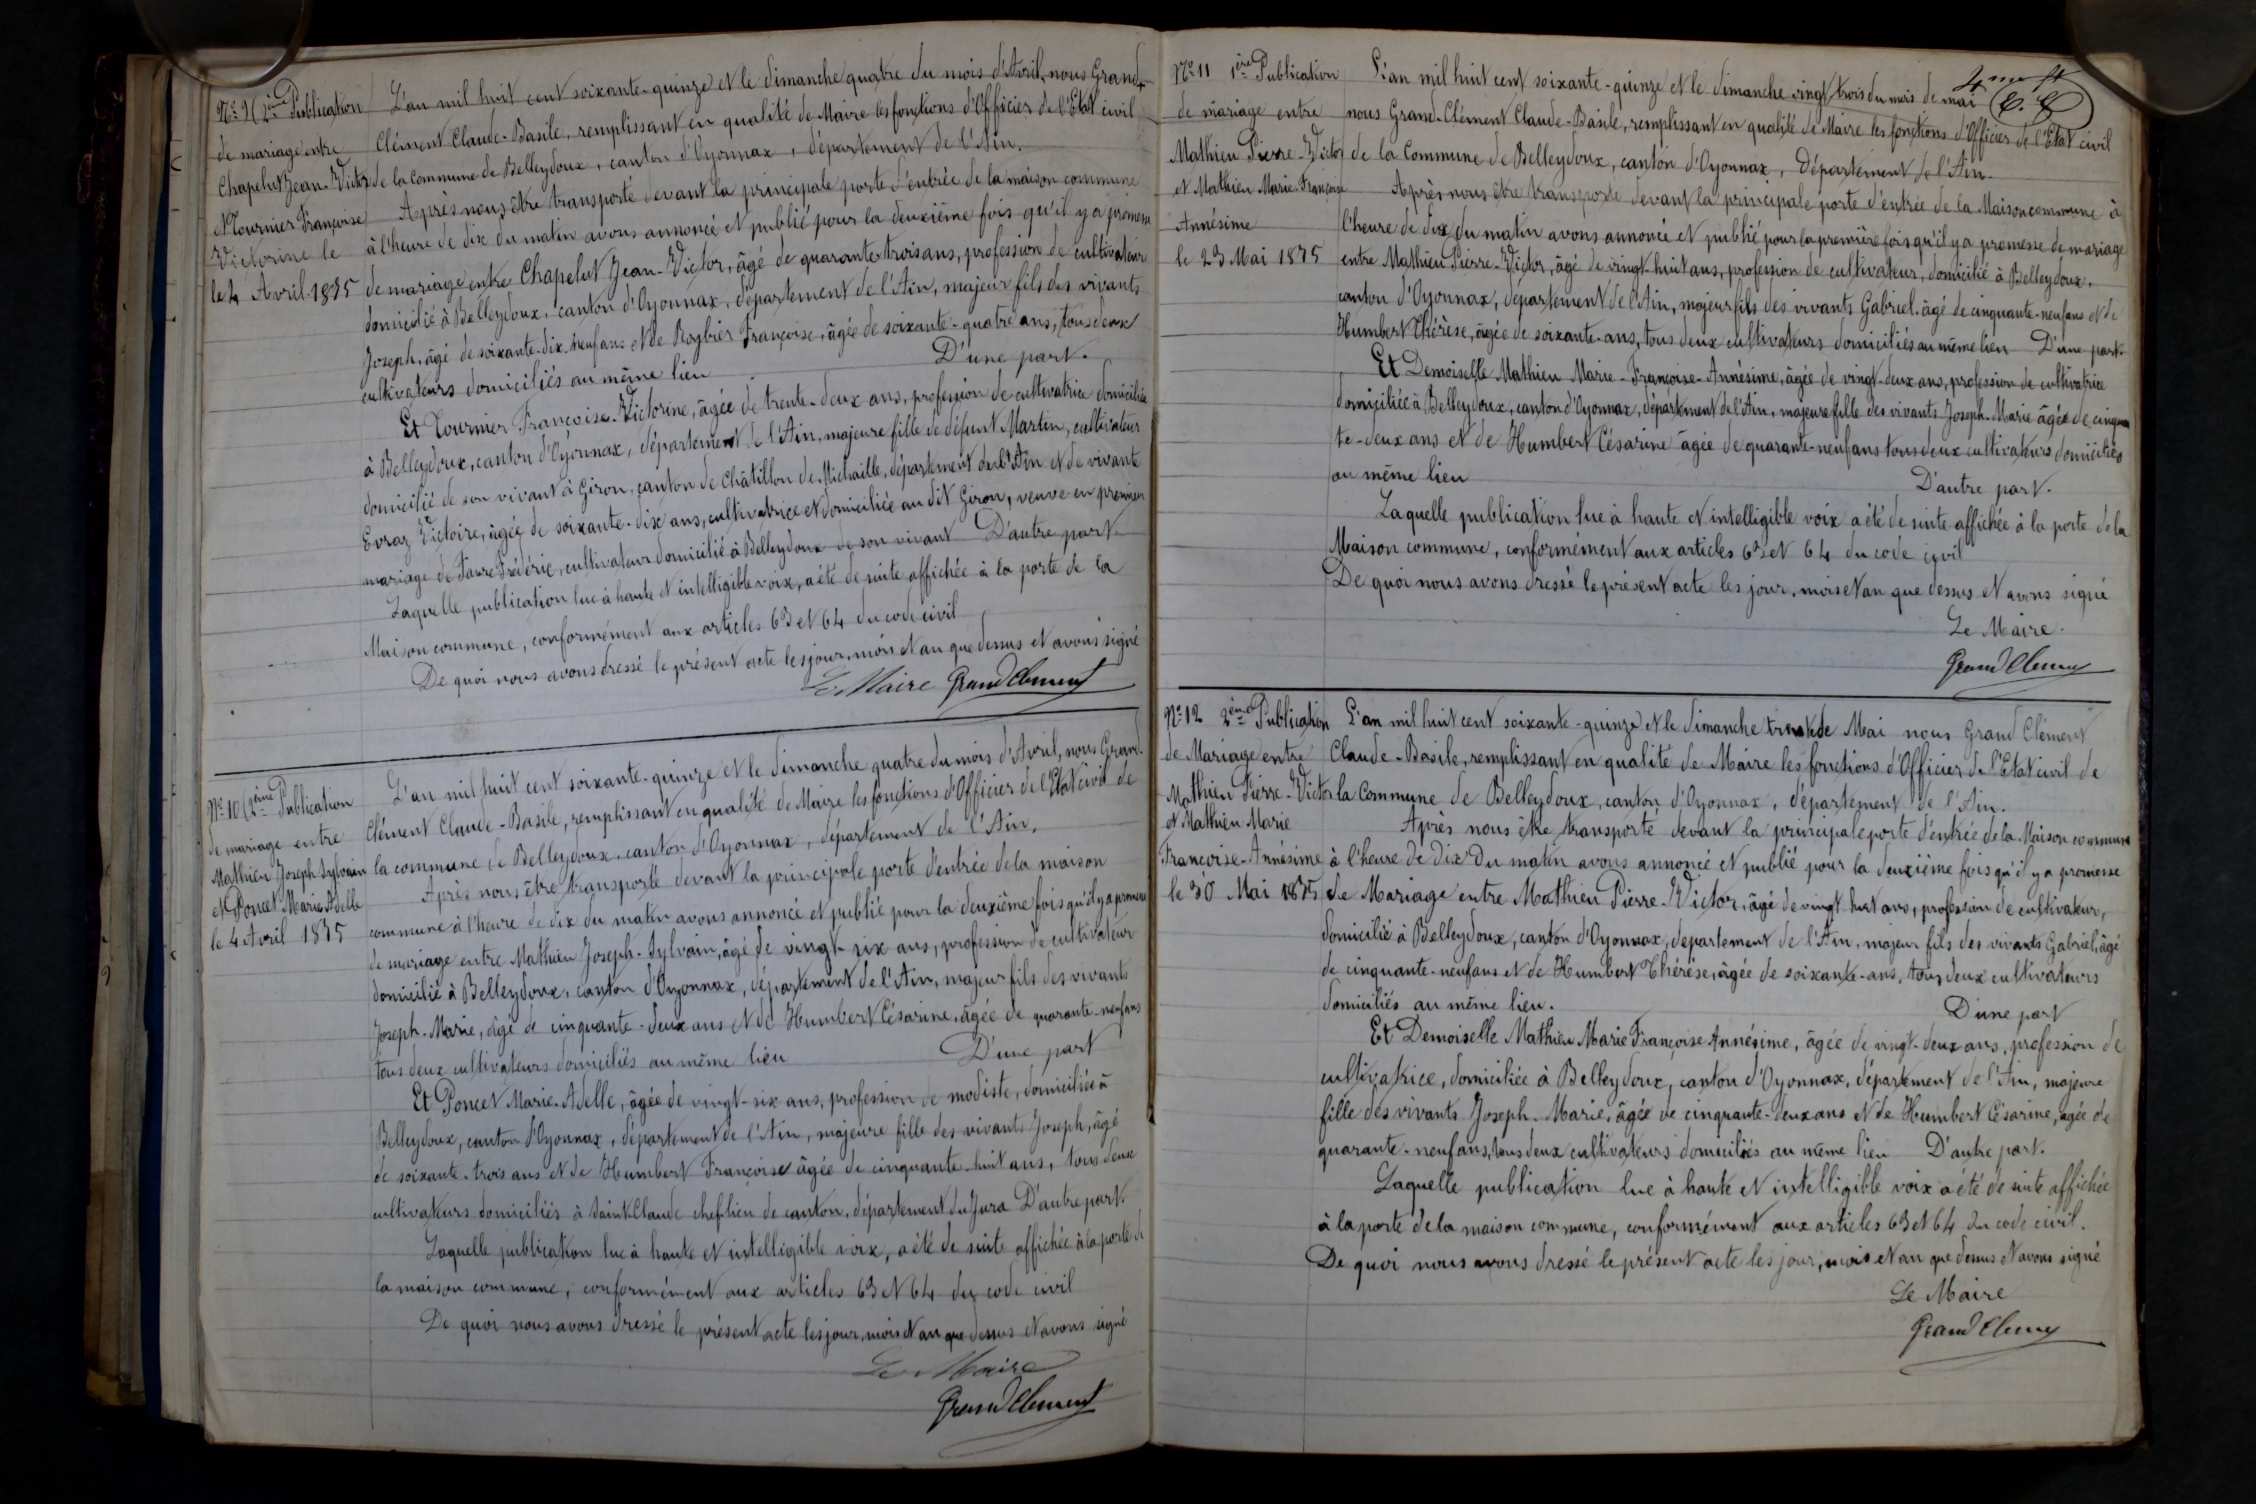 Nº 9 (2ème Publication
de mariage entre
Chapelut Jean-Victor
et Tournier Françoise
Victorine le
le 4 Avril 1875
L'an mil huit cent soixante-quinze et le dimanche quatre du mois d'Avril, nous Grand-
Clément Claude-Basile, remplissant en qualité de Maire les fonctions d'Officier de l'Etat civil
de la commune de Belleydoux, canton d'Oyonnax, département de l'Ain.
Après nous être transporté devant la principale porte d'entrée de la maison commune
à l'heure de dix du matin avons annoncé et publié pour la deuxième fois qu'il y a promesse
de mariage entre Chapelut Jean-Victor, âgé de quarante-trois ans, profession de cultivateur
domicilié à Belleydoux, canton d'Oyonnax, département de l'Ain, majeur fils des vivants
Joseph, âgé de soixante-dix-neuf ans et de Roybier Françoise, âgée de soixante-quatre ans, tous deux
cultivateurs domiciliés au même lieu D'une part.
Et Tournier Françoise-Victorine, âgée de trente-deux ans, profession de cultivatrice domiciliée
à Belleydoux, canton d'Oyonnax, département de l'Ain, majeure fille de défunt Martin, cultivateur
domicilié de son vivant à Giron, canton de Châtillon de Michaille, département de l'Ain et de vivante
Evraz Victoire, âgée de soixante-dix ans, cultivatrice et domiciliée au dit Giron, veuve en premier
mariage de Favre Frédéric, cultivateur domicilié à Belleydoux de son vivant D'autre part
Laquelle publication lue à haute et intelligible voix, a été de suite affichée à la porte de la
Maison commune, conformément aux articles 63 et 64 du code civil
De quoi nous avons dressé le présent acte les jour, mois et an que dessus et avons signé
Le Maire GrandClément
Nº 10 (2ème Publication
de mariage entre
Mathieu Joseph Sylvain
et Poncet Marie Adelle
le 4 Avril 1875
L'an mil huit cent soixante-quinze et le dimanche quatre du mois d'Avril, nous Grand-
Clément Claude-Basile, remplissant en qualité de Maire les fonctions d'Officier de l'Etat civil de
la commune de Belleydoux, canton d'Oyonnax, département de l'Ain.
Après nous être transporté devant la principale porte d'entrée de la maison
commune à l'heure de dix du matin avons annoncé et publié pour la deuxième fois qu'il y a promesse
de mariage entre Mathieu Joseph-Sylvain, âgé de vingt-six ans, profession de cultivateur
domicilié à Belleydoux, canton d'Oyonnax, département de l'Ain, majeur fils des vivants
Joseph-Marie, âgé de cinquante-deux ans et de Humbert Césarine, âgée de quarante-neuf ans
tous deux cultivateurs domiciliés au même lieu D'une part
Et Poncet Marie-Adelle, âgée de vingt-six ans, profession de modiste, domiciliée à
Belleydoux, canton d'Oyonnax, département de l'Ain, majeure fille des vivants Joseph, âgé
de soixante-trois ans et de Humbert Françoise âgée de cinquante-huit ans, tous deux
cultivateurs domiciliés à Saint-Claude chef lieu de canton, département du Jura D'autre part.
Laquelle publication lue à haute et intelligible voix, a été de suite affichée à la porte de
la maison commune, conformément aux articles 63 et 64 du code civil
De quoi nous avons dressé le présent acte les jour, mois et an que dessus et avons signé
Le Maire
GrandClément
4me ft
Nº 11 1ère Publication
de mariage entre
Mathieu Pierre-Victor
et Mathieu Marie-Françoise
Annésime
le 23 Mai 1875
L'an mil huit cent soixante-quinze et le dimanche vingt-trois du mois de mai
nous Grand-Clément Claude-Basile, remplissant en qualité de Maire les fonctions d'Officier de l'Etat civil
de la Commune de Belleydoux, canton d'Oyonnax, département de l'Ain.
Après nous être transporté devant la principale porte d'entrée de la Maison commune à
l'heure de dix du matin avons annoncé et publié pour la première fois qu'il y a promesse de mariage
entre Mathieu Pierre-Victor, âgé de vingt-huit ans, profession de cultivateur, domicilié à Belleydoux,
canton d'Oyonnax, département de l'Ain, majeur fils des vivants Gabriel, âgé de cinquante-neuf ans et de
Humbert Thérèse, âgée de soixante-ans, tous deux cultivateurs domiciliés au même lieu D'une part.
Et Demoiselle Mathieu Marie-Françoise-Annésime, âgée de vingt-deux ans, profession de cultivatrice
domiciliée à Belleydoux, canton d'Oyonnax, département de l'Ain, majeure fille des vivants Joseph-Marie âgée de cinquan
te-deux ans et de Humbert Césarine âgée de quarante-neuf ans tous deux cultivateurs domiciliés
au même lieu D'autre part.
Laquelle publication lue à haute et intelligible voix a été de suite affichée à la porte de la
Maison commune, conformément aux articles 63 et 64 du code civil
De quoi nous avons dressé le présent acte les jour, mois et an que dessus et avons signé
Le Maire.
GrandClément
Nº 12 2ème Publication
de Mariage entre
Mathieu Pierre-Victor
et Mathieu Marie
Françoise-Annésime
le 30 Mai 1875
L'an mil huit cent soixante-quinze et le dimanche trente de Mai nous Grand Clément
Claude-Basile, remplissant en qualité de Maire les fonctions d'Officier de l'Etat civil de
la Commune de Belleydoux, canton d'Oyonnax, département de l'Ain.
Après nous être transporté devant la principale porte d'entrée de la Maison commune
à l'heure de dix du matin avons annoncé et publié pour la deuxième fois qu'il y a promesse
de Mariage entre Mathieu Pierre-Victor, âgé de vingt-huit ans, profession de cultivateur,
domicilié à Belleydoux, canton d'Oyonnax, département de l'Ain, majeur fils des vivants Gabriel, âgé
de cinquante-neuf ans et de Humbert Thérèse, âgée de soixante-ans, tous deux cultivateurs
domiciliés au même lieu. D'une part
Et Demoiselle Mathieu Marie Françoise Annésime, âgée de vingt-deux ans, profession de
cultivatrice, domiciliée à Belleydoux, canton d'Oyonnax, département de l'Ain, majeure
fille des vivants Joseph-Marie, âgée de cinquante-deux ans et de Humbert Césarine, âgée de
quarante-neuf ans, tous deux cultivateurs domiciliés au même lieu D'autre part.
Laquelle publication lue à haute et intelligible voix a été de suite affichée
à la porte de la maison commune, conformément aux articles 63 et 64 du code civil.
De quoi nous avons dressé le présent acte les jour, mois et an que dessus et avons signé
Le Maire
GrandClément